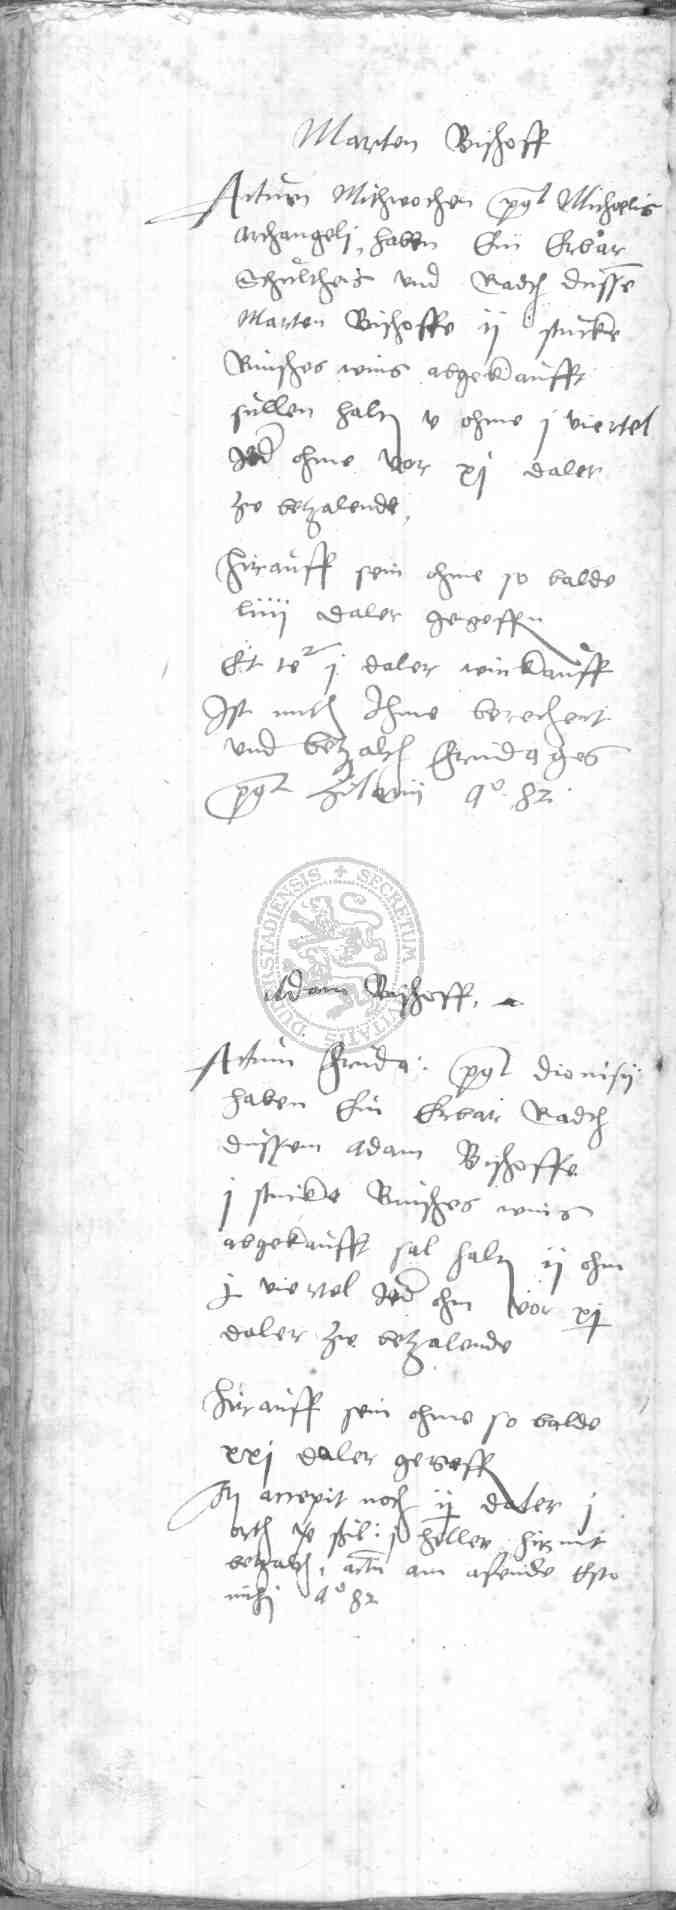 Marten Bishoff
Actum Mithwochen pgt Michaelis
Archangelj, haben Ein Erbar
Schultheis vnd Radth dusse
Marten Bishoffe ij stucke
Rinshes wins abgekaufft
sullen halt v ohme j viertel
Jed ohme vor xj daler
zw betzalende,
Hirauff sein ohme so balde
liiij daler gegeffn
Et te j daler winkauff
Ist mith Ihme berechent
vnd betzalth Fridages
pgt a° 82
SECRETUM CIVITATIS DUDERSTADIENSIS
Adam Bishoff.
Actum Frida: pgt dionisij
haben Ein Erbar Radth
dussem adam Bishoffe
j stucke Rinshes wins
abgekaufft sal halt ij ohm
j viertel Jed ohm vor xj
daler zw betzalende
Hirauff sein ohme so balde
xxj daler gegeff
accepit noch ij daler j
orth shil: j heller hirmit
betzalth, actu am afende Esto
mihj a° 82